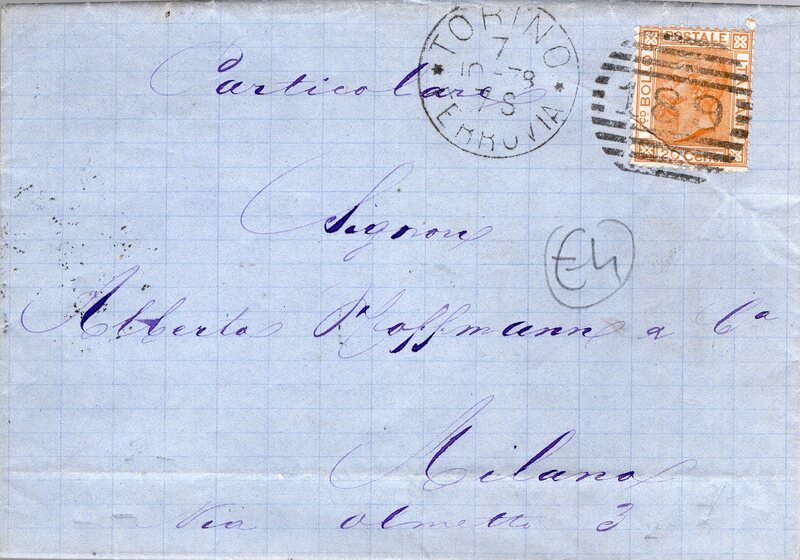 TORINO
7
10-78
FERROVIA
POSTALE
BOLLO
20 Cent
Particolare
Signori
E4
Alberto Hoffmann a Cª
Milano
Via Olmetto 3